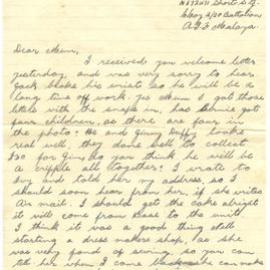 Short S.G.
2/20 Battalion
A.I.F. Malaya.
Dear Mum,
I received your welcome letter
yesterday, and was very sorry to hear
Jack broke his wrist so he will be a
long time off work, yes Mum I got those
letters with the snaps in, has got
four children, as there are four in
the photo? and Ginny Duffy looks
real well, they done well to collect
for Gin, do you think he will be
a cripple all together? I wrote to
Ivy and told her my address, so I
should soon hear from her, if she writes
Air mail. I should get the cake alright
it will come from Base to the unit
I think it was a good thing
starting a dress makers shop, as she
was very fond of sewing, so you can
tell her when I come she can make